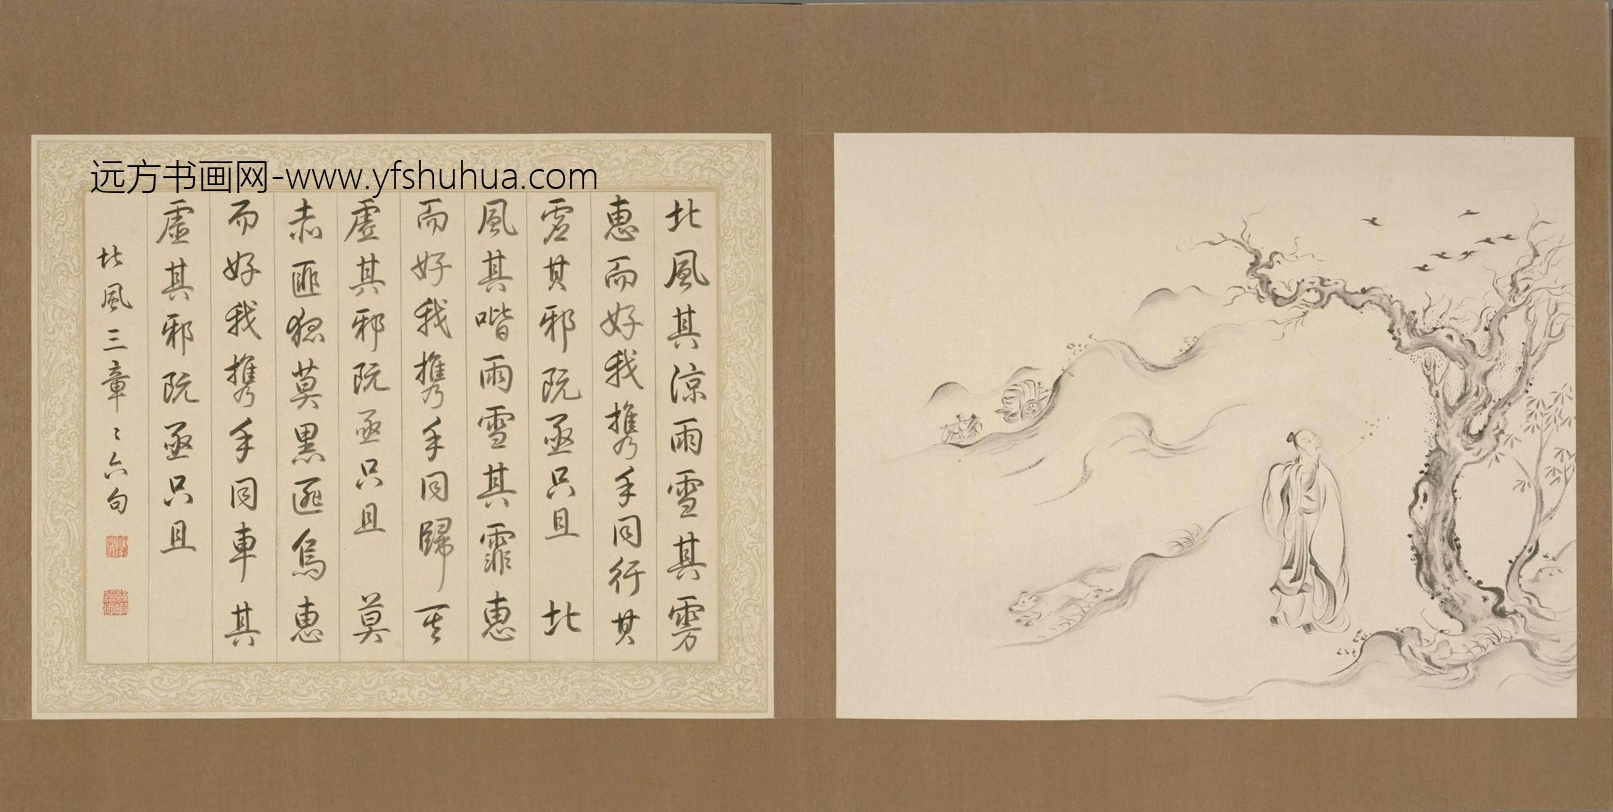 远方书画网-www.yfshuhua.com
北風其涼雨雪其雱
惠而好我攜手同行其
虛其邪既亟只且 北
風其喈雨雪其霏惠
而好我攜手同歸其
虛其邪既亟只且 莫
赤匪狐莫黑匪烏惠
而好我攜手同車 其
虛其邪既亟只且
北風三章〻六句